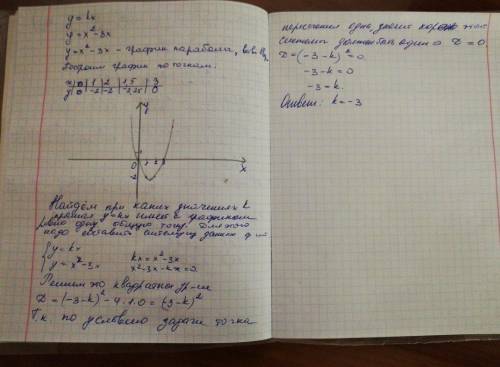 y = kx
y = x² - 3x
y = x² - 3x - график парабола,
Построим график по точкам.
x | 0 | 1 | 2 | 1,5 | 3
y | 0 | -2 | -2 | -2,25 | 0
y
0
x
Найдём при каких значениях k
прямая y=kx имеет с графиком
ровно одну общую точку. Для этого
надо составить систему данных
y = kx
y = x² - 3x
kx = x² - 3x
x² - 3x - kx = 0
Решим это квадратное ур-ие
D = (-3-k)² - 4·1·0 = (-3-k)²
Т.к. по условию задачи точка
пересечения одна, значит
системы должен быть один D = 0.
D = (-3-k)² = 0
-3 - k = 0
-3 = k.
Ответ: k = -3